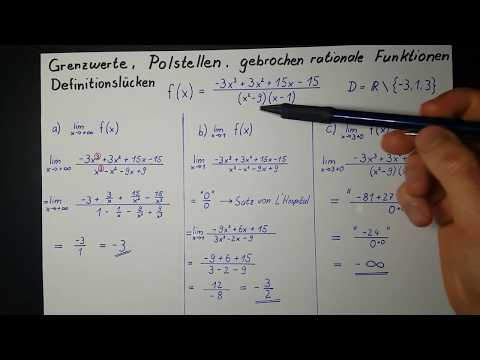 Grenzwerte, Polstellen, gebrochen rationale Funktionen
Definitionslücken f(x) = (-3x³ + 3x² + 15x - 15) / ((x² - 9)(x - 1)) D = R \ {-3, 1, 3}
a) lim x→+∞ f(x)
lim x→+∞ (-3x³ + 3x² + 15x - 15) / (x³ - x² - 9x + 9)
= lim x→+∞ (-3 + 3/x + 15/x² - 15/x³) / (1 - 1/x - 9/x² + 9/x³)
= -3/1 = -3
b) lim x→1 f(x)
lim x→1 (-3x³ + 3x² + 15x - 15) / (x³ - x² - 9x + 9)
= "0"/0 → Satz von L'Hospital
= lim x→1 (-9x² + 6x + 15) / (3x² - 2x - 9)
= (-9 + 6 + 15) / (3 - 2 - 9)
= 12/-8 = -3/2
c) lim x→3+0 f(x)
lim x→3+0 (-3x³ + 3x²
(x²-9)
= " -81 + 27
= " -24 / 0+0 "
= -∞